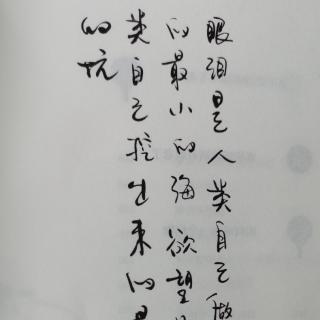 眼泪是人类自己做
的最小的海欲望是
类自己挖出来的最
的坑